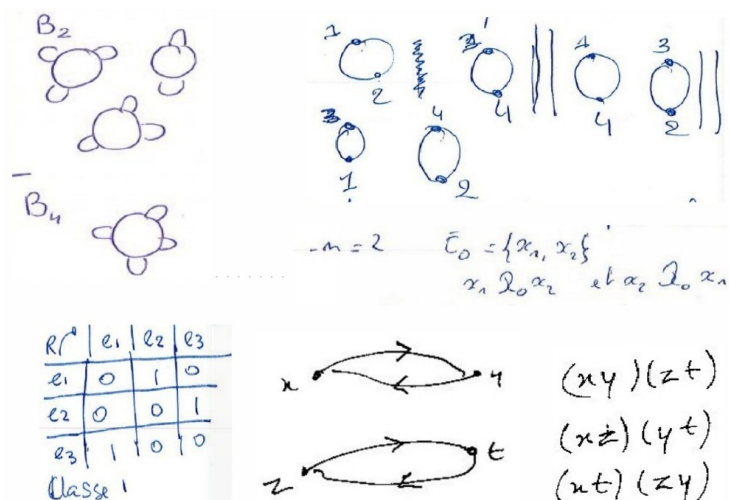 B2
1
2
4
4
4
3
2
3
1
4
2
B4
n = 2 E0 = {x1, x2}
x1 R0 x2 et x2 R0 x1
e1 e2 e3
e1 0 1 0
e2 0 0 1
e3 1 0 0
Classe 1
x y
z t
(xy)(zt)
(xz)(yt)
(xt)(zy)